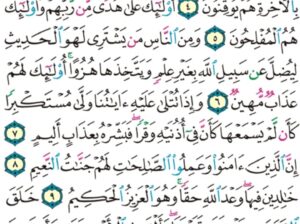 بِالْآخِرَةِ هُمْ يُوقِنُونَ ٤ أُوْلَٰٓئِكَ عَلَىٰ هُدًى مِّن رَّبِّهِمْ وَأُوْلَٰٓئِكَ
هُمُ الْمُفْلِحُونَ ٥ وَمِنَ النَّاسِ مَن يَشْتَرِى لَهْوَ الْحَدِيثِ
لِيُضِلَّ عَن سَبِيلِ اللَّهِ بِغَيْرِ عِلْمٍ وَيَتَّخِذَهَا هُزُوًا أُوْلَٰٓئِكَ لَهُمْ
عَذَابٌ مُّهِينٌ ٦ وَإِذَا تُتْلَىٰ عَلَيْهِ ءَايَٰتُنَا وَلَّىٰ مُسْتَكْبِرًا
كَأَن لَّمْ يَسْمَعْهَا كَأَنَّ فِىٓ أُذُنَيْهِ وَقْرًا فَبَشِّرْهُ بِعَذَابٍ أَلِيمٍ ٧
إِنَّ الَّذِينَ ءَامَنُوا وَعَمِلُوا الصَّٰلِحَٰتِ لَهُمْ جَنَّٰتُ النَّعِيمِ ٨
خَٰلِدِينَ فِيهَا وَعْدَ اللَّهِ حَقًّا وَهُوَ الْعَزِيزُ الْحَكِيمُ ٩ خَلَقَ